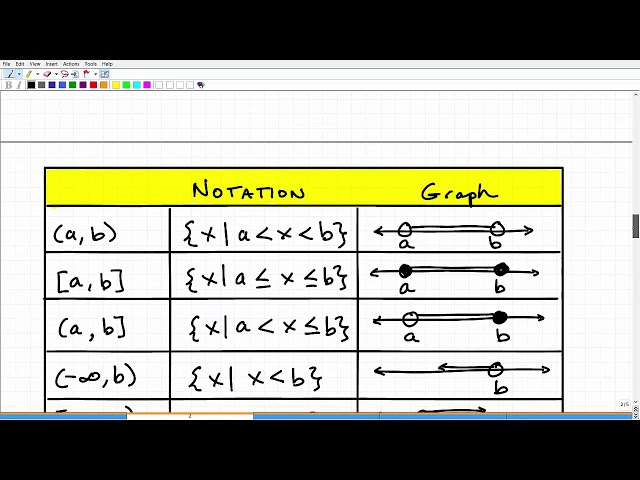 File Edit View Insert Actions Tools Help
B I
NOTATION Graph
(a, b) {x | a < x < b} a b
[a, b] {x | a ≤ x ≤ b} a b
(a, b] {x | a < x ≤ b} a b
(-∞, b) {x | x < b} b
2/5
2